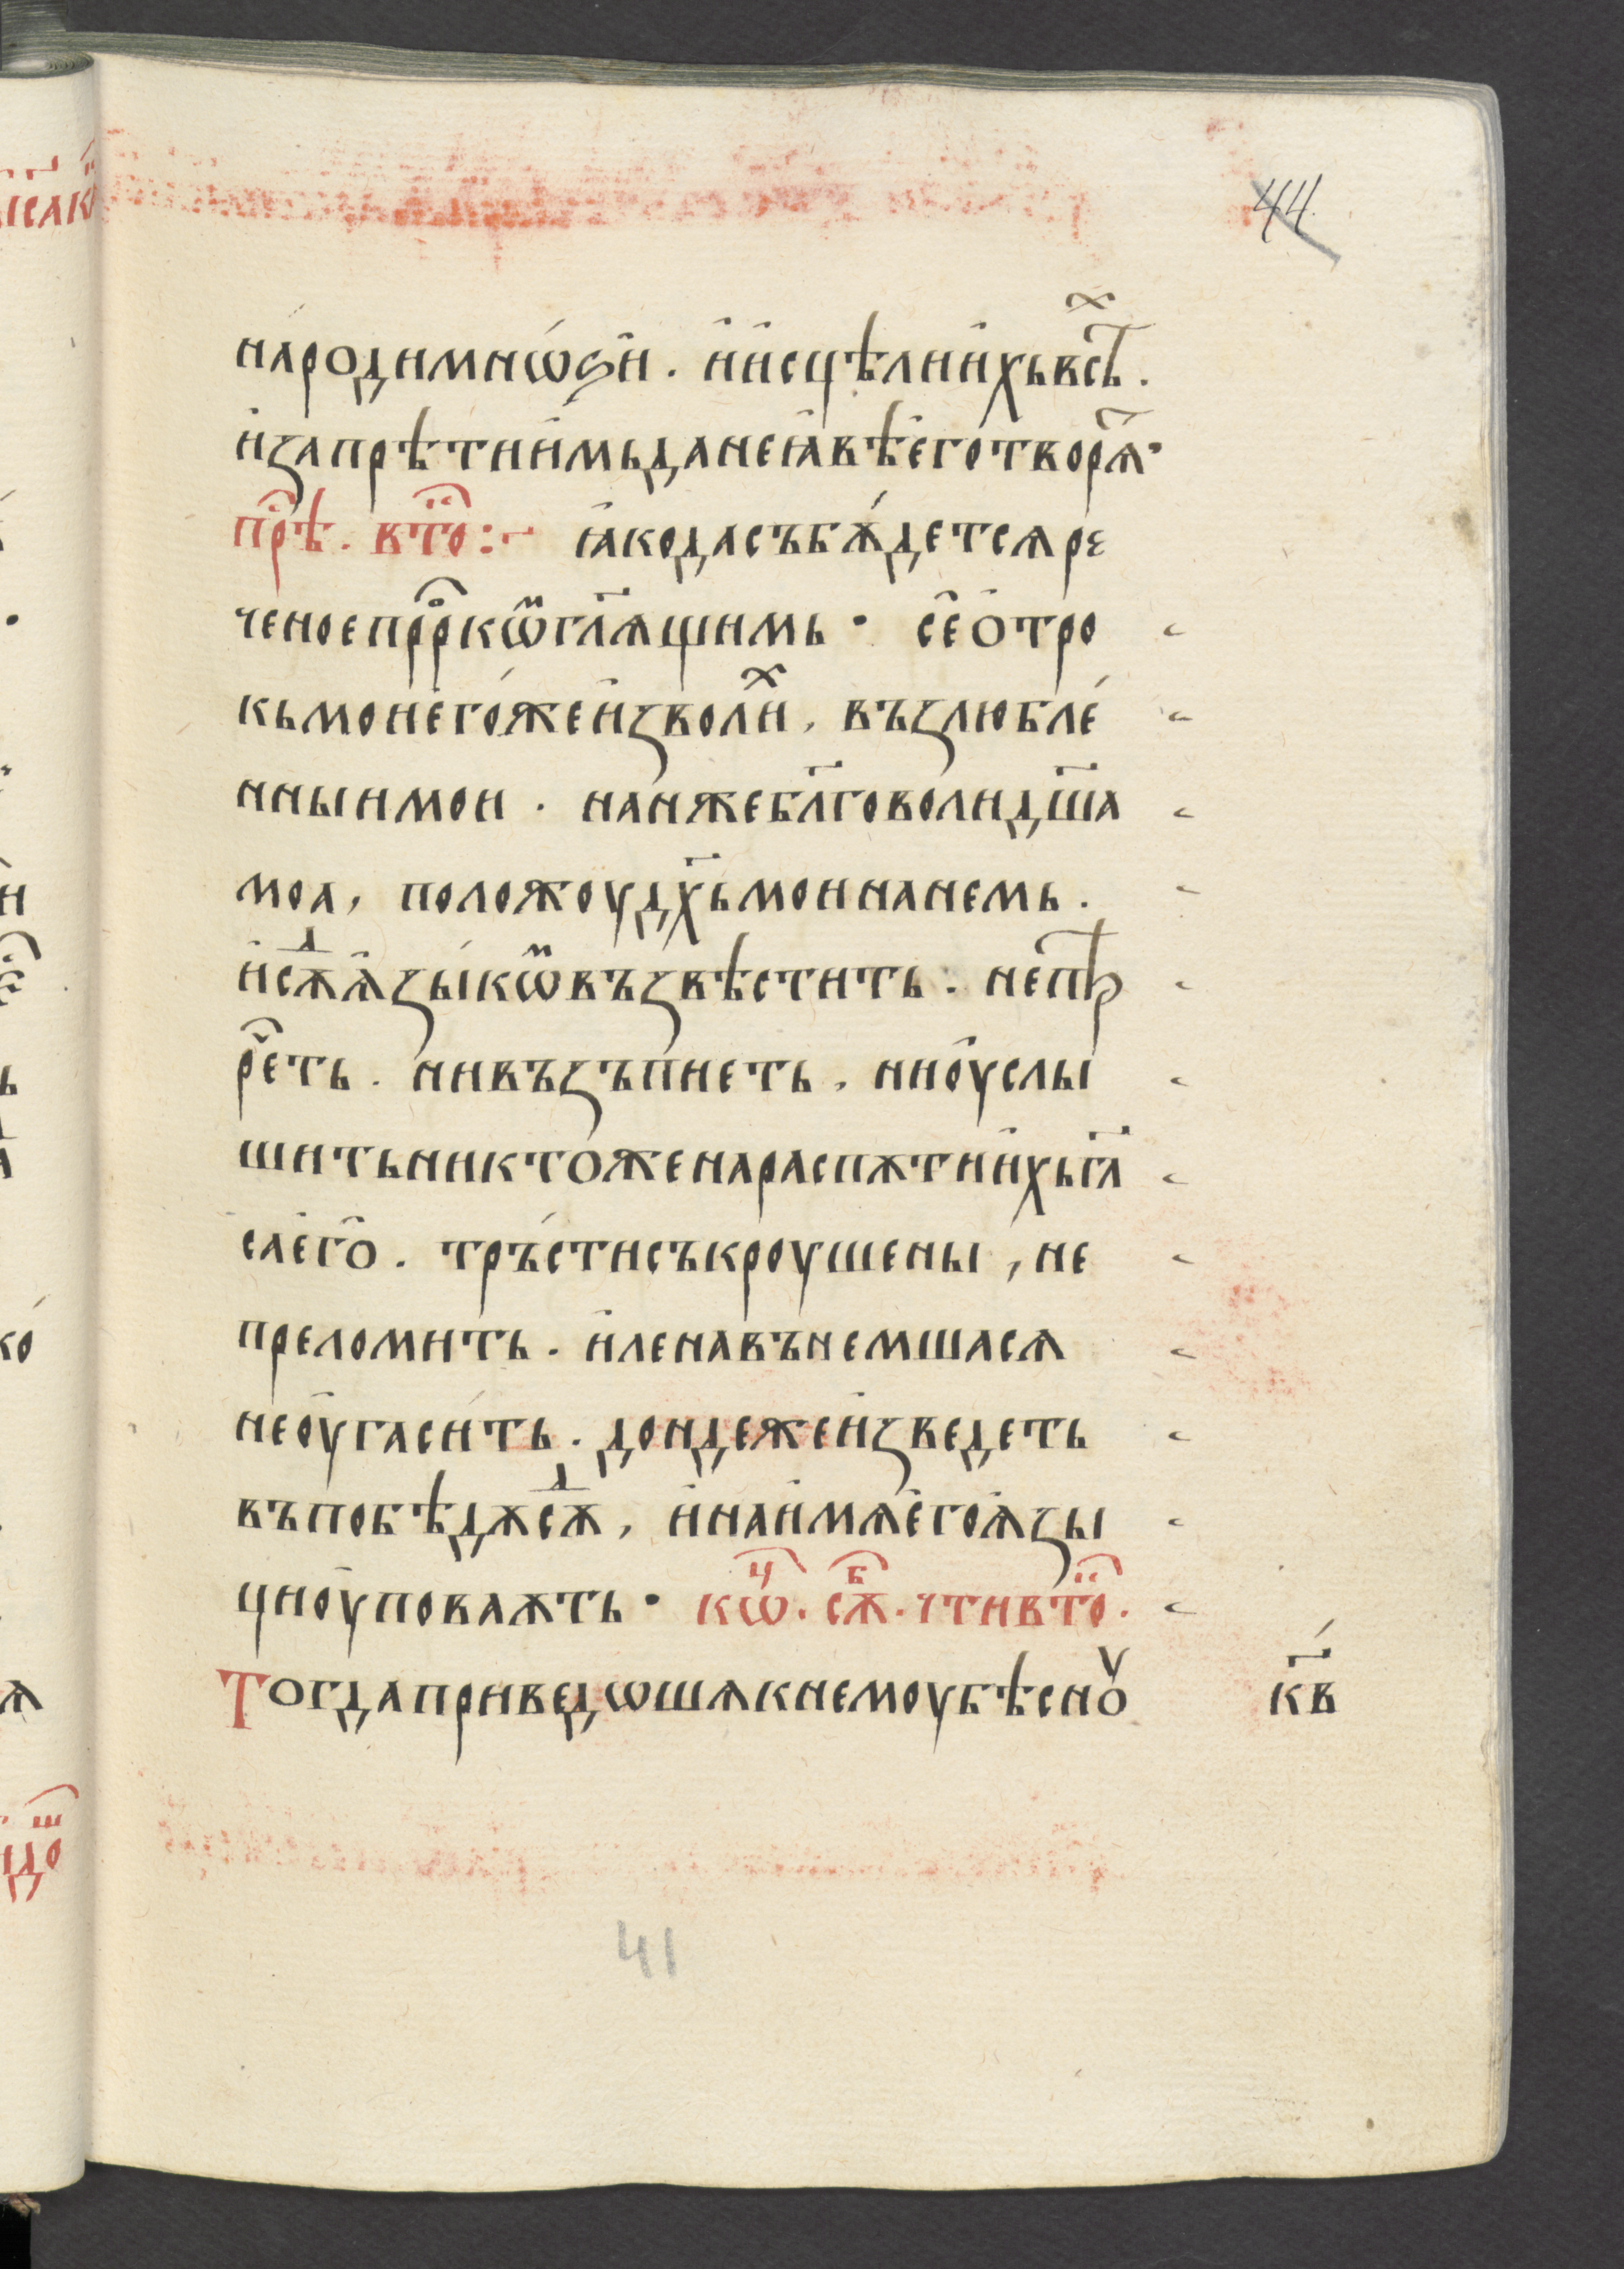 44
наро́димнѡ́ѕи . и҆и҆сцѣлии҆хьвсѣⷯ .
и҆запрѣтии҆мьданеꙗ҆вѣе҆го́творѧ҇ ·
прⷭ҇ѣ . втⷪ҇о :~ ꙗ҆кодасъбѫ́детсѧре
ченоепррⷪ҇кѡⷨгл҃ѧщимь · се҆о҆тро
кьмоне҆го́жеи҆зволиⷯ , възлюбле́
нныимои . нанжебл҃говолидш҃а
моа , положоудх҃ьмоинанемь .
и҆сѫⷣѧ҆зы́кѡⷨвъзвѣститъ : непрѣ
рⷱ҇еть . нивъзъпиеть , нио҆услы
шитьниктоженараспѫтии҆хьгл҃
сае҆го҆ . тръ́стисъкроушены , не
преломить . и҆ленавънемшасѧ
нео҆угаси́ть . дондежеи҆зведеть
въпобѣдѫсѫⷣ , и҆наи҆мѧе҆гоѧ҆зы
цио҆уповаѫть · кѡⷰ҇ . сѫⷠ҇ . чтивтⷪ҇о .
Тогдаприведѡшѧкнемоубѣсноу кв҃
41